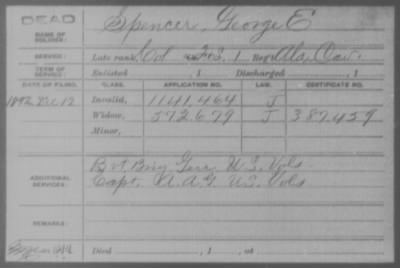 DEAD
NAME OF SOLDIER: Spencer, George E
SERVICE: Late rank, Col F.S. 1 Reg't Ala. Cav.
TERM OF SERVICE: Enlisted , 1 Discharged , 1
DATE OF FILING. CLASS. APPLICATION NO. LAW. CERTIFICATE NO.
1892 Dec 12 Invalid, 1141,464 J
Widow, 572679 J 387459
Minor,
ADDITIONAL SERVICES: Bvt Brig Genr U.S. Vols
Capt. A.A.G U.S. Vols
REMARKS:
Died , 1 , at